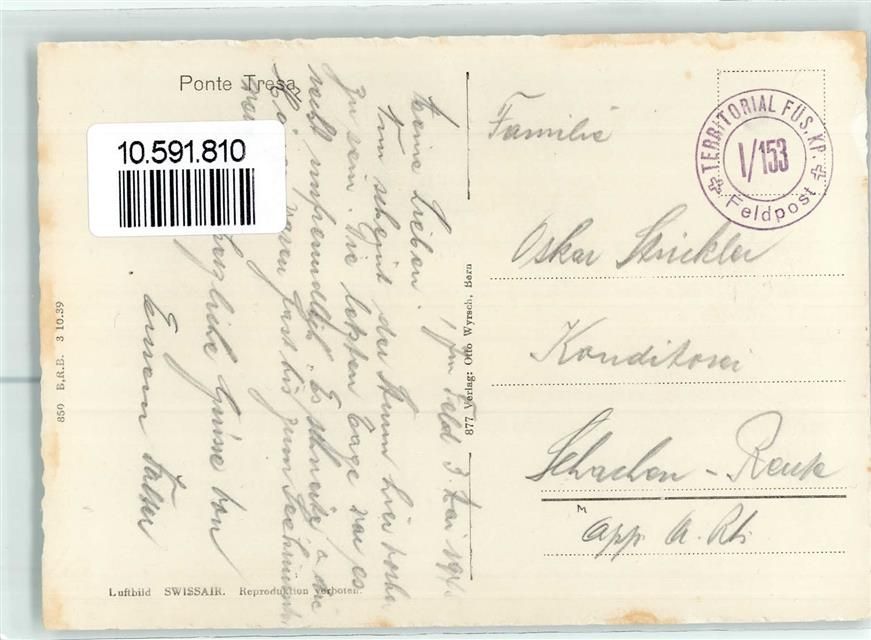 Ponte Tresa
10.591.810
TERRITORIAL FÜS. KP.
I/153
Feldpost
Familie
Oskar Strickler
Konditorei
Schachen - Reute
App. A. Rh.
M
877 Verlag: Otto Wyrsch, Bern
850 B.R.B. 3 10.39
Luftbild SWISSAIR. Reproduktion verboten.
Im Feld 3.
Meine Lieben.
Nun scheint der Sturm hier vorbei
zu sein. Die letzten Tage war es
recht unfreundlich. Es schneite, & die
waren fast bis zum
herzliche Grüsse von
Eurem Vater